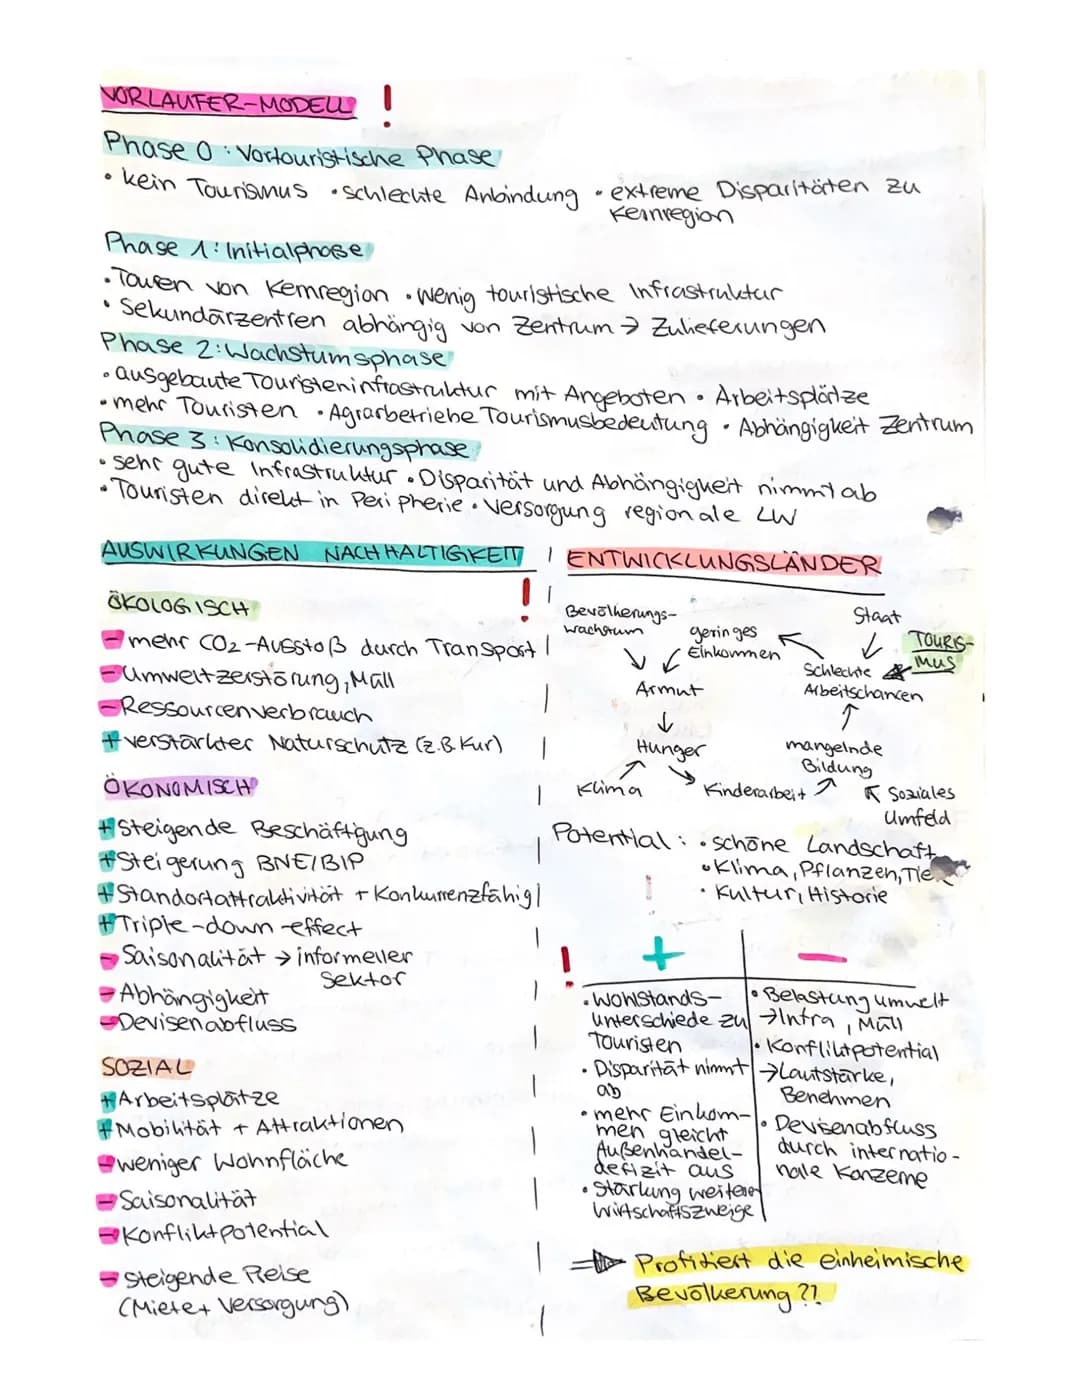 VORLÄUFER-MODELL !
Phase 0: Vortouristische Phase
• kein Tourismus • schlechte Anbindung • extreme Disparitäten zu
Kernregion
Phase 1: Initialphase
• Touren von Kernregion • wenig touristische Infrastruktur
• Sekundärzentren abhängig von Zentrum → Zulieferungen
Phase 2: Wachstumsphase
• ausgebaute Touristeninfrastruktur mit Angeboten • Arbeitsplätze
• mehr Touristen • Agrarbetriebe Tourismusbedeutung • Abhängigkeit Zentrum
Phase 3: Konsolidierungsphase
• sehr gute Infrastruktur • Disparität und Abhängigkeit nimmt ab
• Touristen direkt in Peripherie • Versorgung regionale LW
AUSWIRKUNGEN NACHHALTIGKEIT
!
ÖKOLOGISCH
- mehr CO2-Ausstoß durch Transport
- Umweltzerstörung, Müll
- Ressourcenverbrauch
+ verstärkter Naturschutz (z.B. Kur)
ÖKONOMISCH
+ Steigende Beschäftigung
+ Steigerung BNE/BIP
+ Standortattraktivität + Konkurrenzfähig
+ Triple-down-effect
- Saisonalität → informeller
Sektor
- Abhängigkeit
- Devisenabfluss
SOZIAL
+ Arbeitsplätze
+ Mobilität + Attraktionen
- weniger Wohnfläche
- Saisonalität
- Konfliktpotential
- steigende Preise
(Miete + Versorgung)
ENTWICKLUNGSLÄNDER
Bevölkerungs-
wachstum
geringes
Einkommen
Staat
TOURIS-
MUS
Schlechte
Arbeitschancen
Armut
Hunger
mangelnde
Bildung
Klima
Kinderarbeit
Soziales
Umfeld
Potential: • schöne Landschaft
• Klima, Pflanzen, Tie
! • Kultur, Historie
! +
• Wohlstands-
unterschiede zu
Touristen
• Disparität nimmt
ab
• mehr Einkom-
men gleicht
Außenhandel-
defizit aus
• Stärkung weiterer
Wirtschaftszweige
-
• Belastung umwelt
→ Infra, Müll
• Konfliktpotential
→ Lautstärke,
Benehmen
• Devisenabfluss
durch internatio-
nale Konzerne
⇒ Profitiert die einheimische
Bevölkerung?!